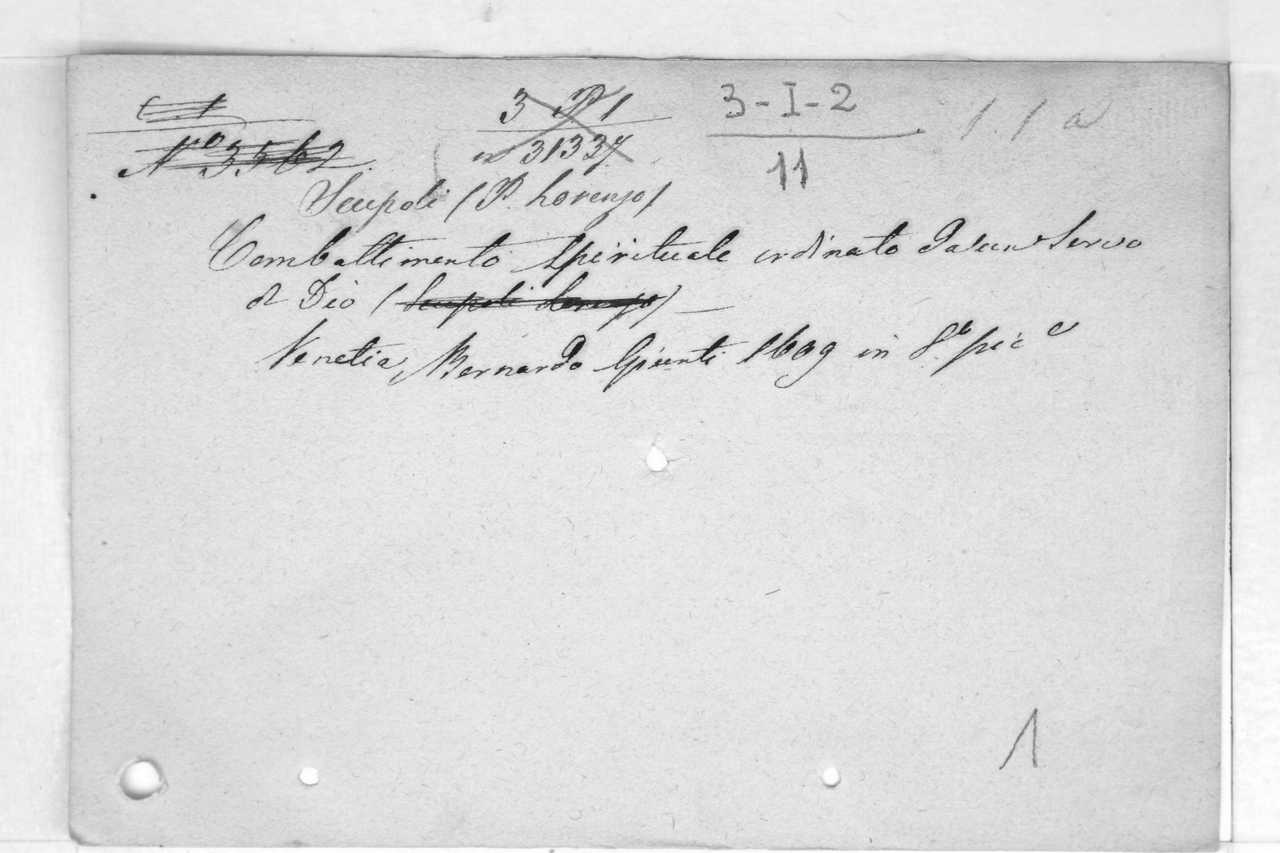 3 P 1 3-I-2 1.1 a
Nº 3562 31337 11
Scupoli (P. Lorenzo)
Combattimento Spirituale ordinato da un Servo
di Dio (Scupoli Lorenzo) —
Venetia, Bernardo Giunti 1609 in 8º picº
1